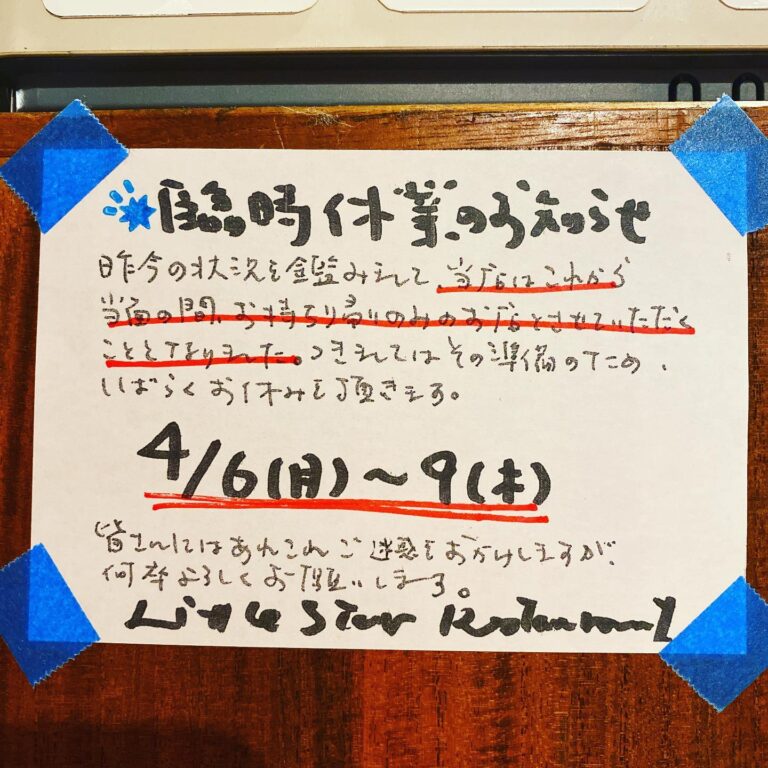 臨時休業のお知らせ
昨今の状況を鑑みまして、当店はこれから
当面の間、お持ち帰りのみのお店とさせていただく
こととなりました。つきましてはその準備のため、
しばらくお休みを頂きます。
4/6(月)~9(木)
皆さんにはあれこれご迷惑をおかけしますが、
何卒よろしくお願いします。
Little Star Restaurant